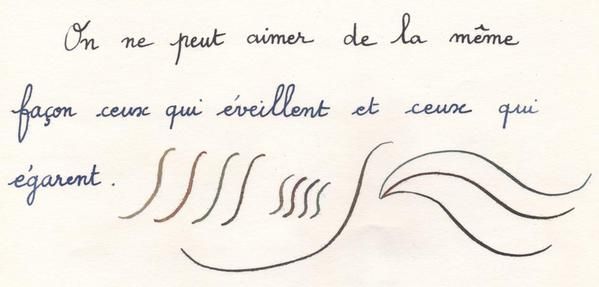 On ne peut aimer de la même
façon ceux qui éveillent et ceux qui
égarent.